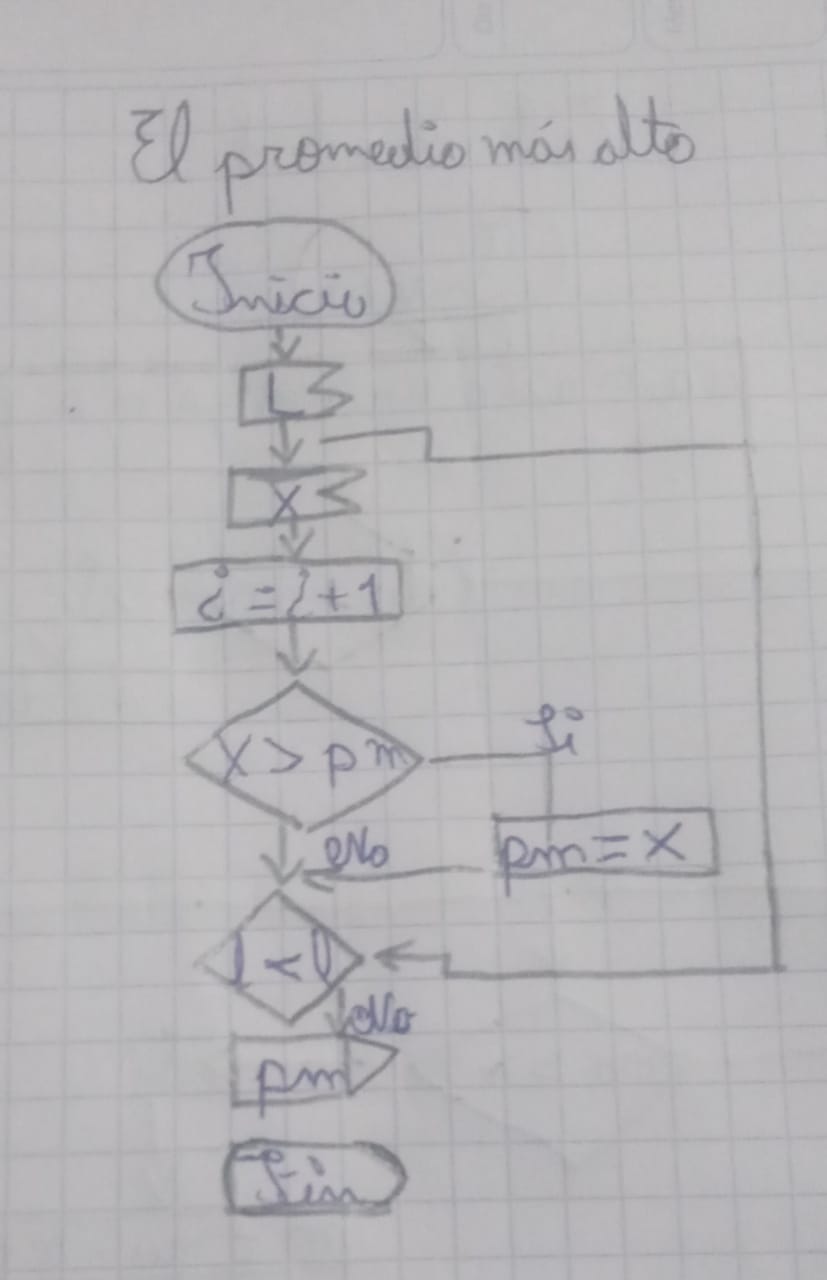 El promedio más alto
Inicio
L
X
i = i + 1
X > pm
Si
pm = X
No
l < l
No
pm
Fin